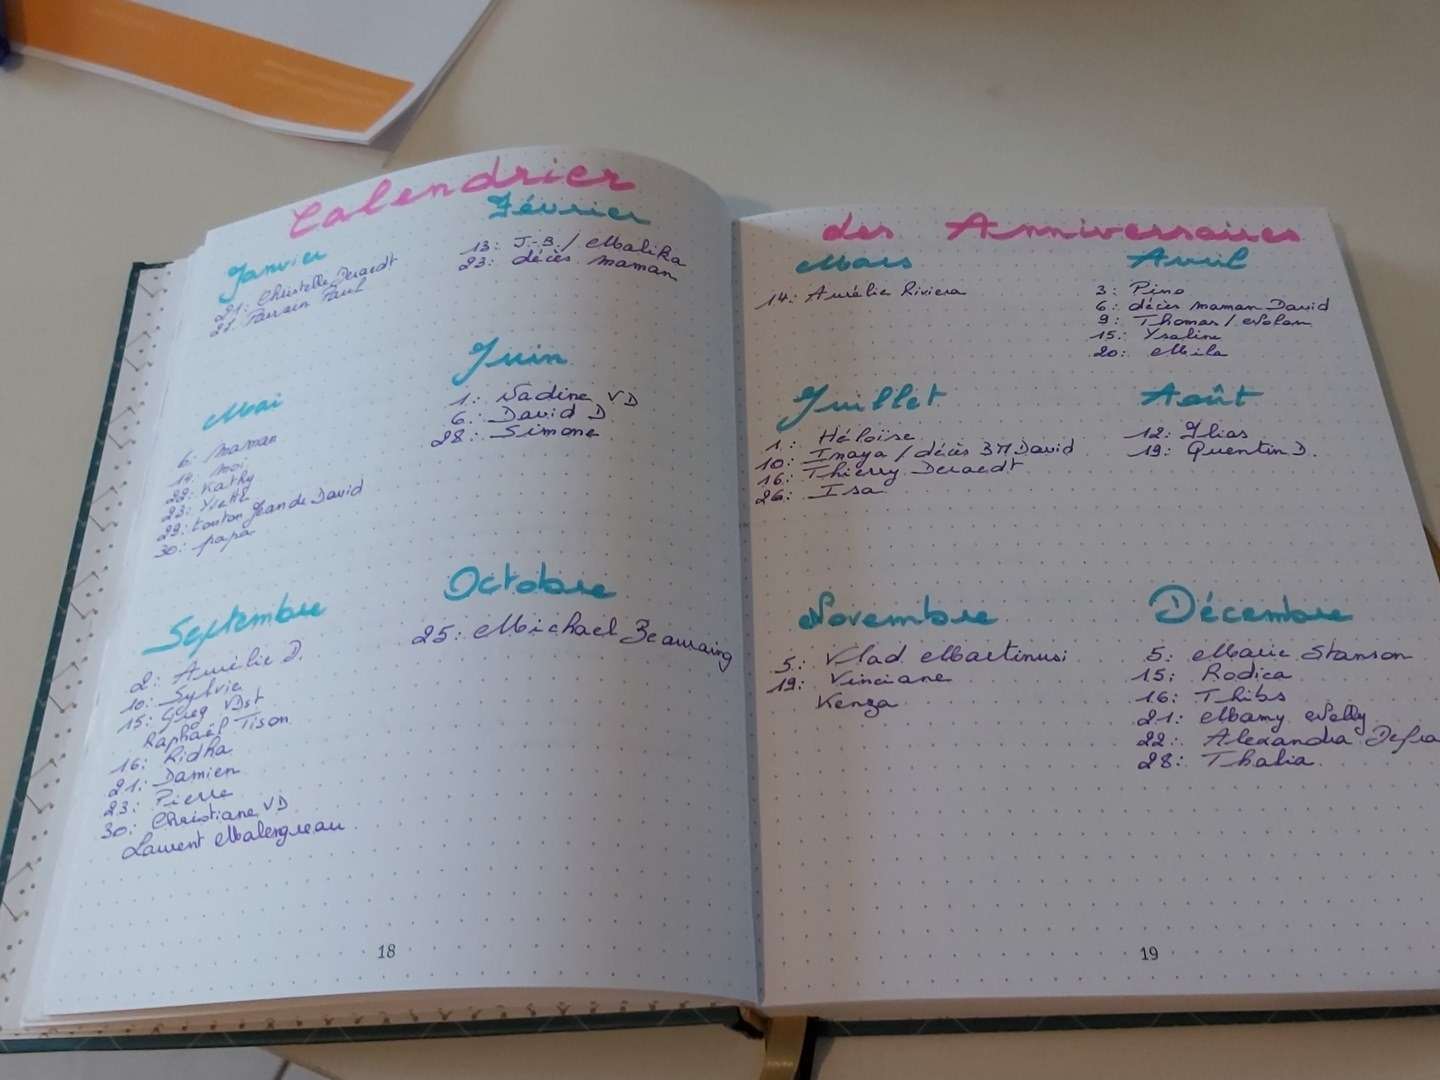 Calendrier
Janvier
21: Christelle Deraedt
27: Parrain Paul
Février
13: J-B / Malika
23: décès maman
Mai
6: maman
14: moi
22: Kathy
23:
29: tonton Jean de David
30: papa
Juin
1: Nadine VD
6: David D
28: Simone
Septembre
2: Aurélie D.
10: Sylvie
15: Greg VDst
Raphaël Tison
16: Ridha
21: Damien
23: Pierre
30: Christiane VD
Laurent Malengreau
Octobre
25: Michael Beauraing
18
des Anniversaires
Mars
14: Aurélie Riviera
Avril
3: Pino
6: décès maman David
9: Thomas / Nolan
15: Ysaline
20: Mila
Juillet
1: Héloïse
10: Inaya / décès BM David
16: Thierry Deraedt
26: Isa
Août
12: Ilias
19: Quentin D.
Novembre
5: Vlad Martinusi
19: Vinciane
Kenza
Décembre
5: Marie Stanson
15: Rodica
16: Thibs
21: Mamy Nelly
22: Alexandra Defra
28: Thalia
19